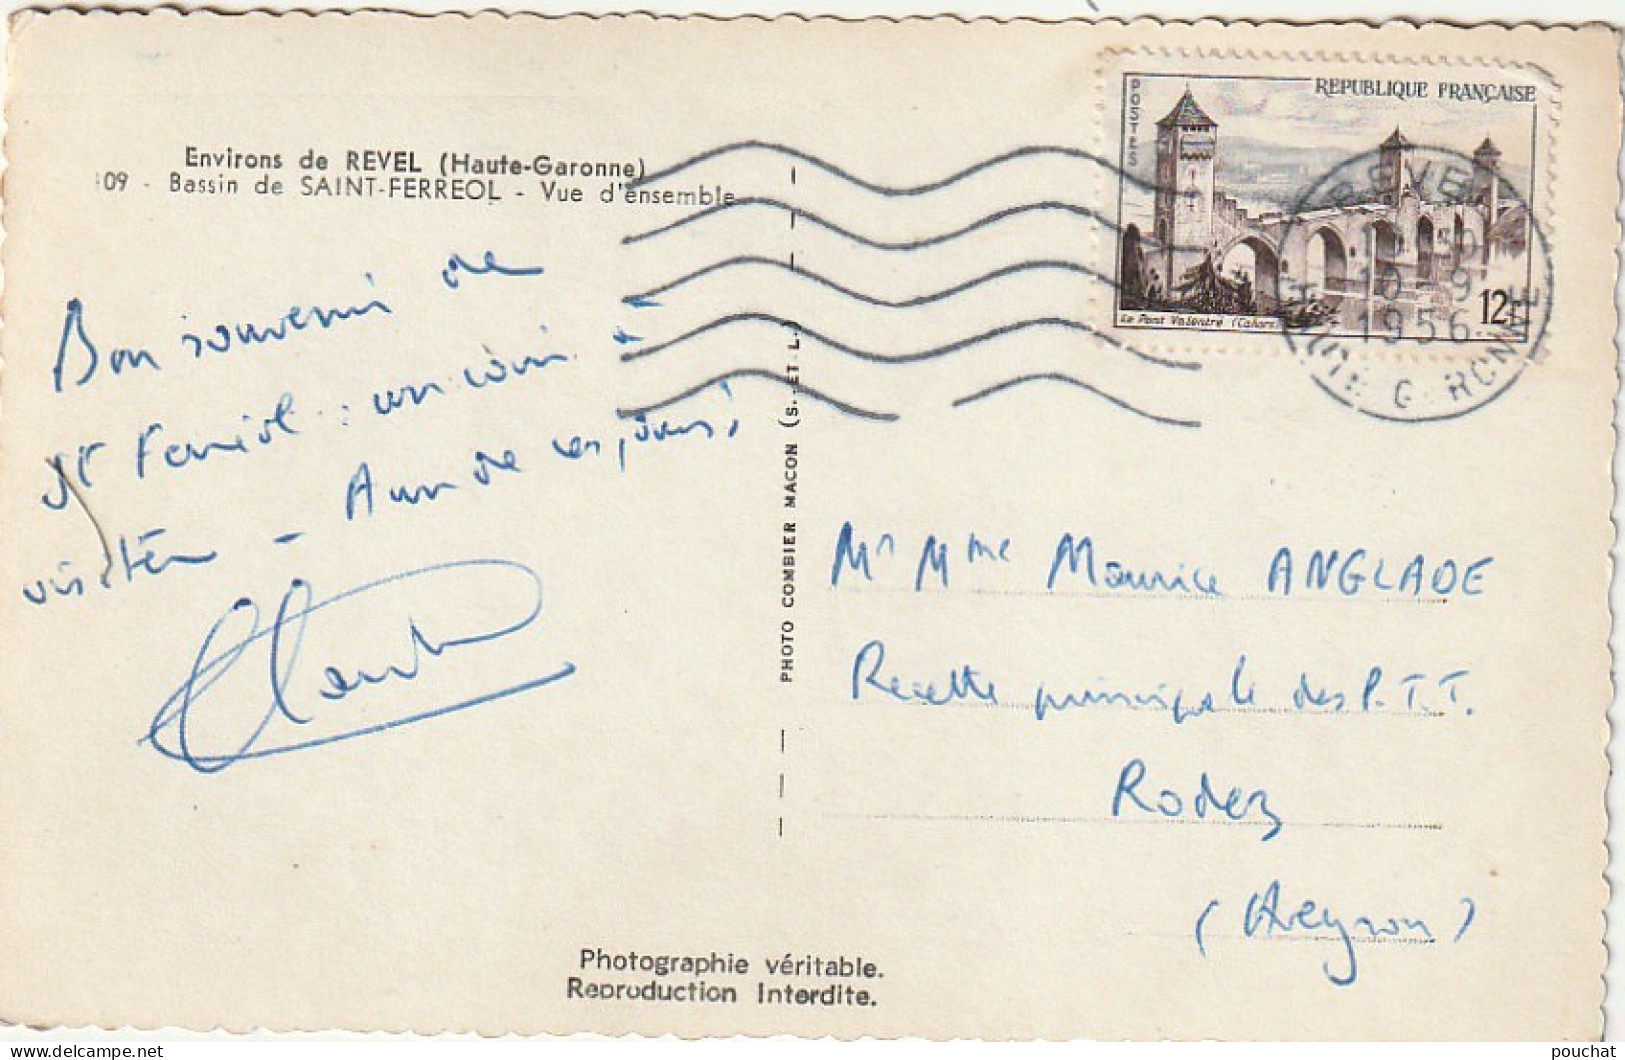 Environs de REVEL (Haute-Garonne)
109 - Bassin de SAINT-FERREOL - Vue d'ensemble
Bon souvenir de
St Ferréol : un coin à
visiter - Aun de ces jours !
PHOTO COMBIER MACON (S. ET L.)
POSTES
REPUBLIQUE FRANÇAISE
Le Pont Valentré (Cahors)
12F
REVEL
1956
Mr Mme Maurice ANGLADE
Recette principale des P.T.T.
Rodez
(Aveyron)
Photographie véritable.
Reproduction Interdite.
pouchat